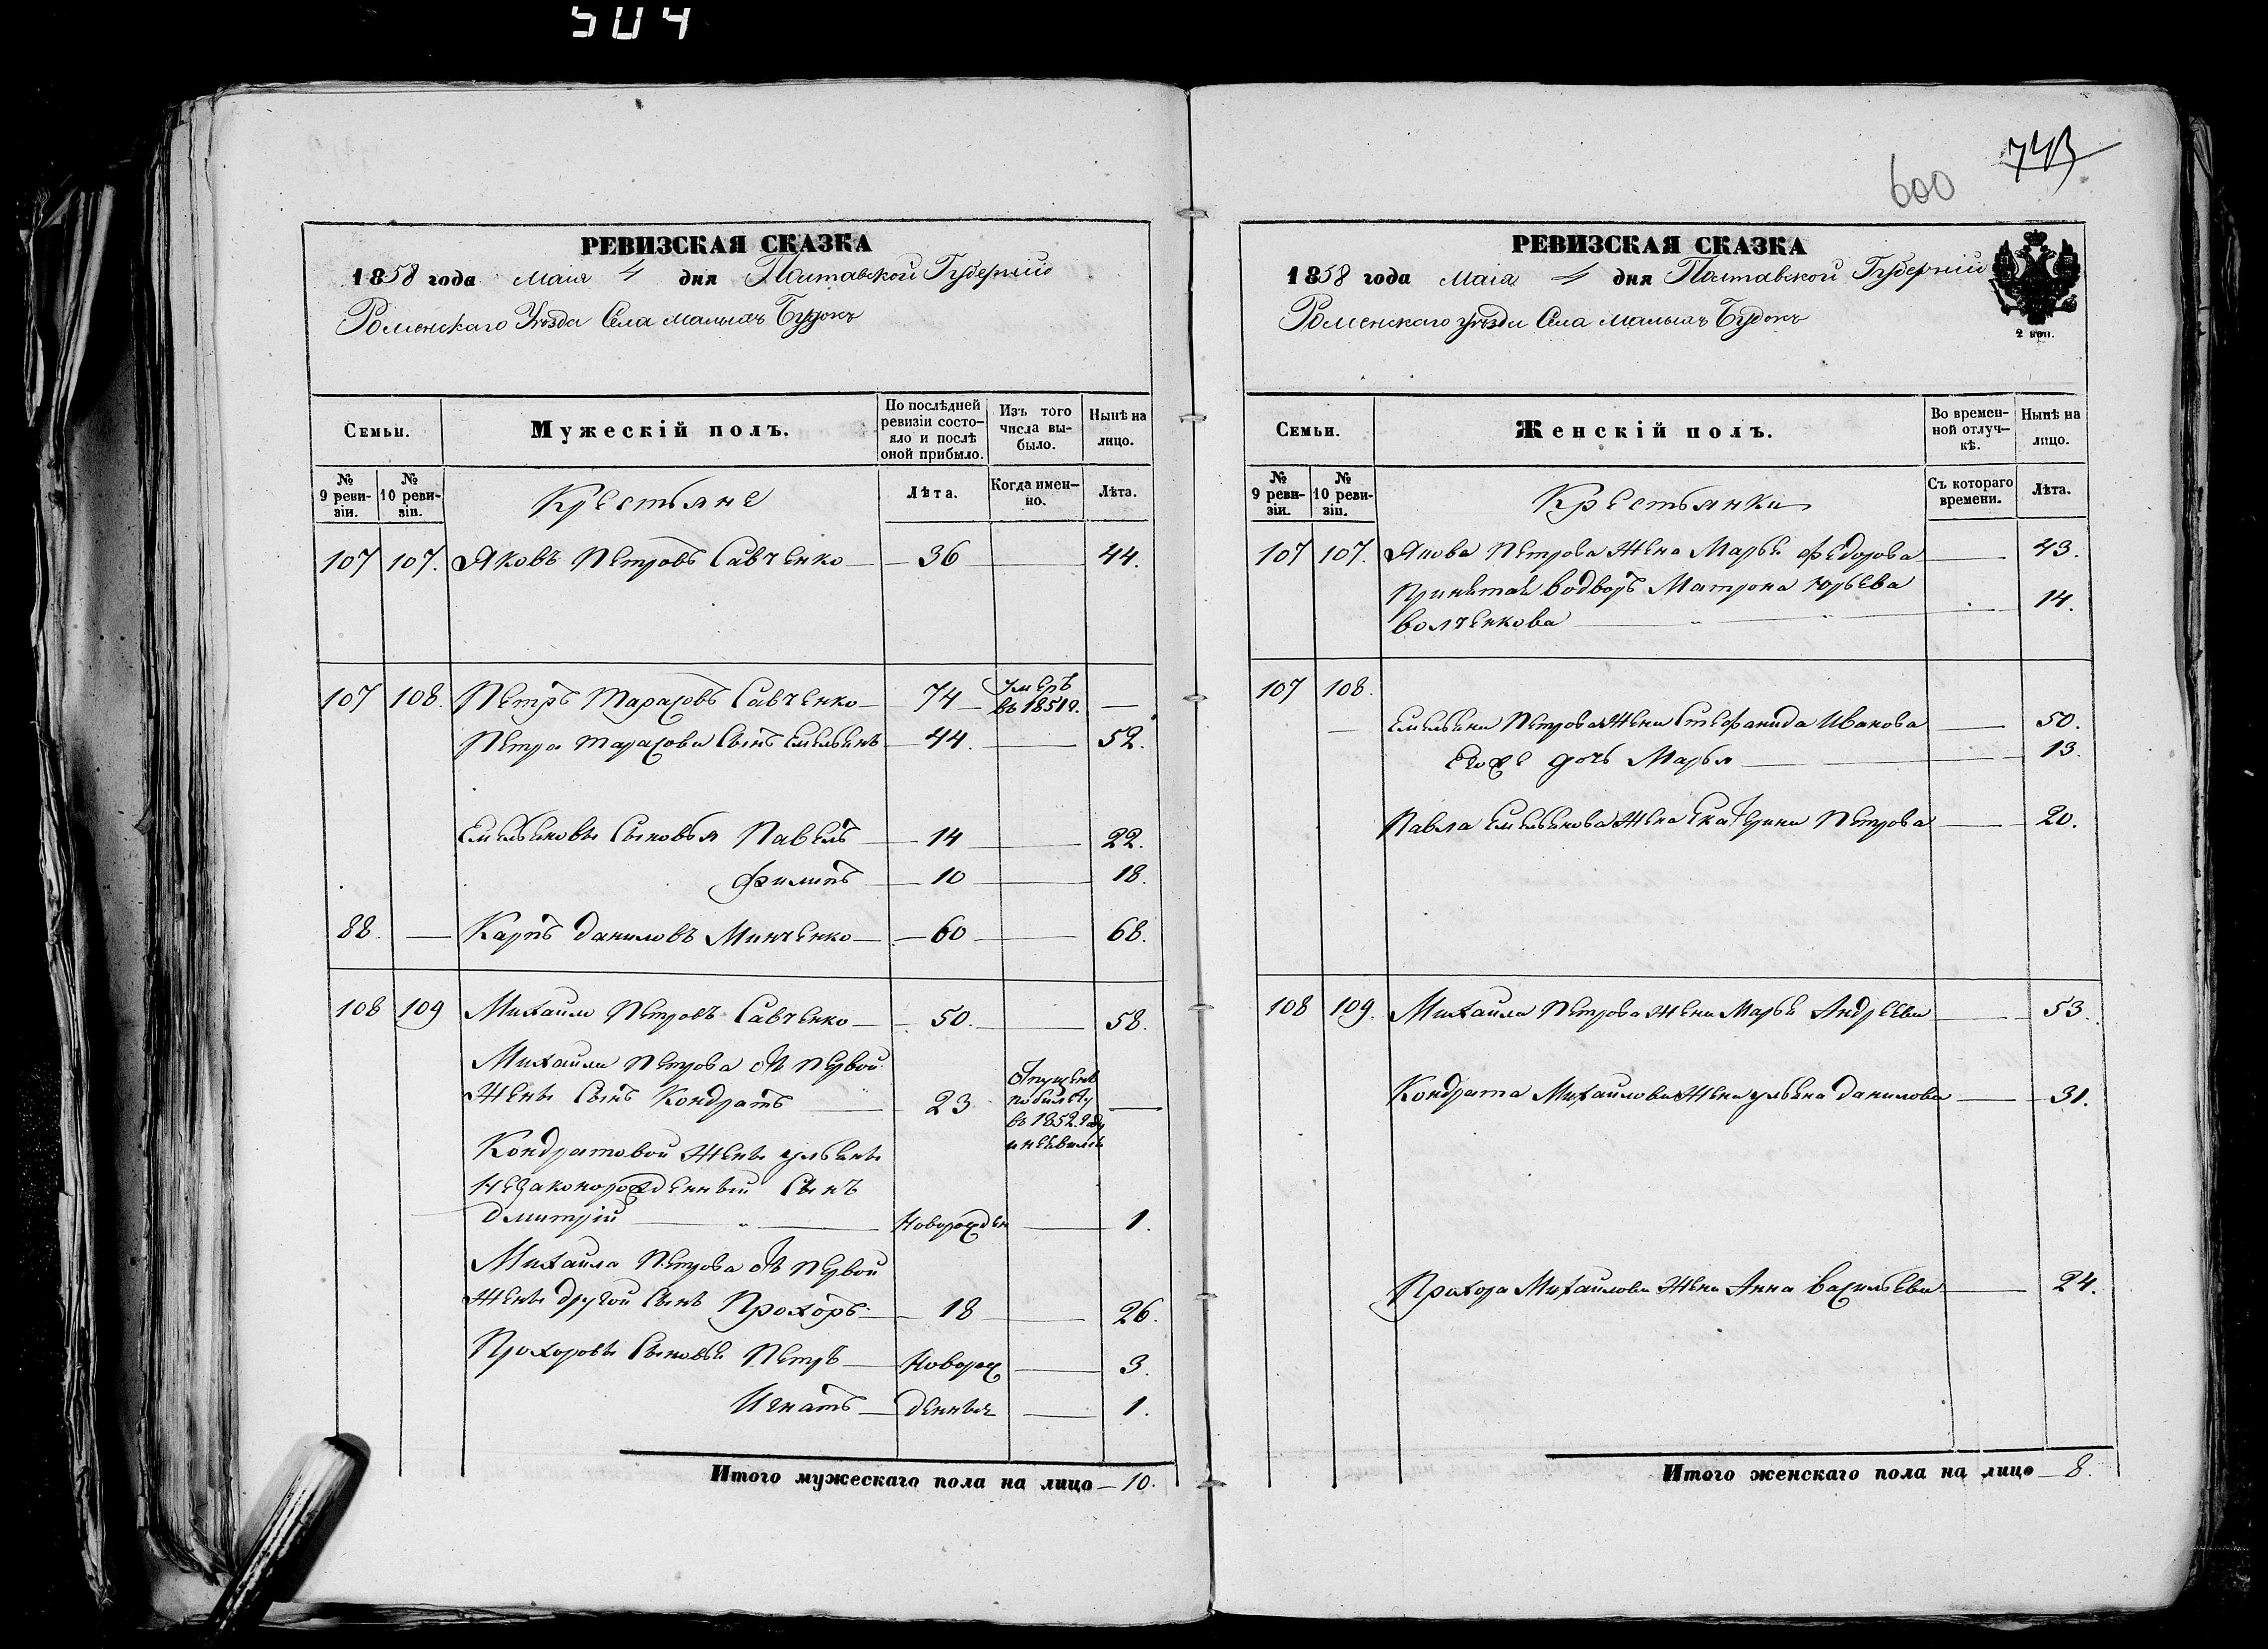 504
РЕВИЗСКАЯ СКАЗКА
1858 года Маія 4 дня Полтавской Губерніи
Роменскаго Уѣзда Села Малыхъ Будокъ
Семьи.
Мужескій полъ.
По послѣдней ревизіи состояло и послѣ оной прибыло.
Изъ того числа выбыло.
Нынѣ на лицо.
№ 9 ревизіи.
№ 10 ревизіи.
Крестьяне
Лѣта.
Когда именно.
Лѣта.
107 107. Яковъ Петровъ Савченко 36 44.
107 108. Петръ Тарасовъ Савченко 74 умеръ въ 1851г.
Петра Тарасова Сынъ Емельянъ 44. 52.
Емельяновы Сыновья Павелъ 14 22.
Филипъ 10 18.
88. Карпъ Даниловъ Минченко 60 68.
108 109 Михайло Петровъ Савченко 50. 58.
Михайла Петрова отъ первой
Жены Сынъ Кондратъ 23 Отпущенъ
по билету
въ 1852 году
и неявился
Кондратовой Жены ульяны
незаконорожденный Сынъ
Дмитрій " Новорожден 1.
Михайла Петрова отъ первой
Жены другой Сынъ Прохоръ 18 26.
Прохоровы Сыновья Петръ Новорож 3.
Игнатъ денные 1.
Итого мужескаго пола на лицо 10.
600 743
РЕВИЗСКАЯ СКАЗКА
1858 года Маія 4 дня Полтавской Губерніи
Роменскаго уѣзда Села Малыхъ Будокъ
2 коп.
Семьи.
Женскій полъ.
Во временной отлучкѣ.
Нынѣ на лицо.
№ 9 ревизіи.
№ 10 ревизіи.
Крестьянки
Съ котораго времени.
Лѣта.
107 107. Якова Петрова Жена Марья Федорова 43.
Принятая водворъ Матрона Юрьева
Волченкова 14.
107 108.
Емельяна Петрова Жена Стефанида Иванова 50.
Егоже дочь Марья 13.
Павла Емельянова Жена Екатерина Петрова 20.
108 109. Михайла Петрова Жена Марья Андреева 53.
Кондрата Михайлова Жена ульяна Данилова 31.
Прохора Михайлова Жена Анна Васильева 24.
Итого женскаго пола на лицо 8.